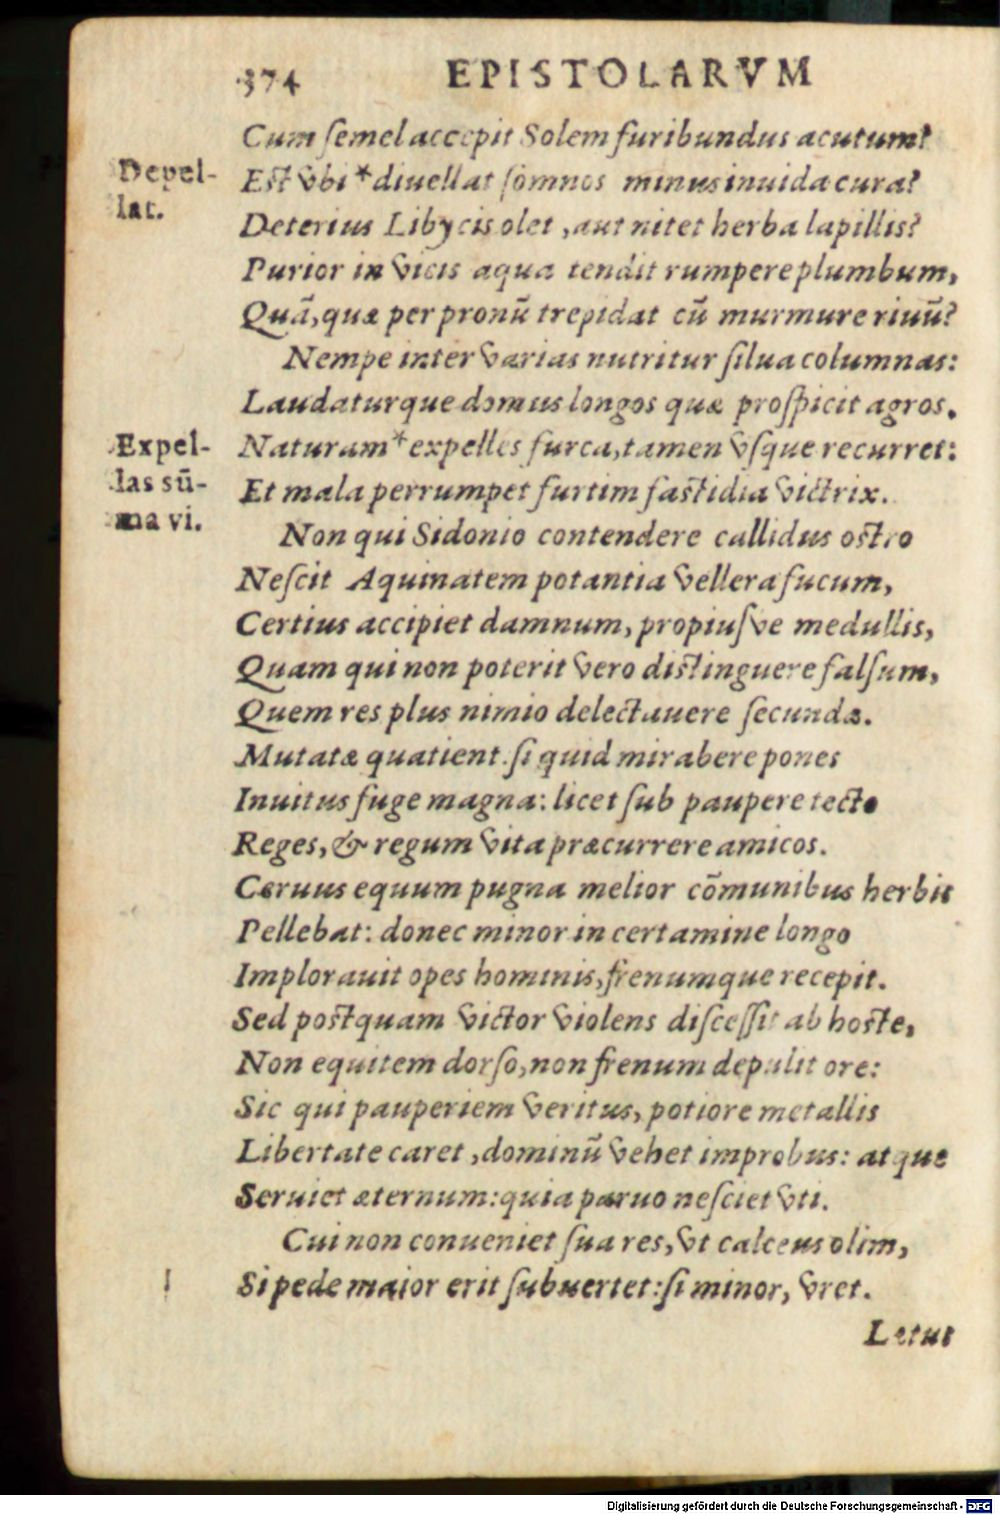 374 EPISTOLARVM
Cum ſemel accepit Solem furibundus acutum?
Eſt vbi * diuellat ſomnos minus inuida cura?
Depel-
lat.
Deterius Libycis olet, aut nitet herba lapillis?
Purior in vicis aqua tendit rumpere plumbum,
Quã, quæ per pronũ trepidat cũ murmure riuũ?
Nempe inter varias nutritur ſilua columnas:
Laudaturque domus longos quæ proſpicit agros.
Naturam * expelles furca, tamen vſque recurret:
Expel-
las sũ-
ma vi.
Et mala perrumpet furtim faſtidia victrix.
Non qui Sidonio contendere callidus oſtro
Neſcit Aquinatem potantia vellera fucum,
Certius accipiet damnum, propiuſve medullis,
Quam qui non poterit vero diſtinguere falſum,
Quem res plus nimio delectauere ſecundæ.
Mutatæ quatient. ſi quid mirabere pones
Inuitus fuge magna: licet ſub paupere tecto
Reges, & regum vita præcurrere amicos.
Ceruus equum pugna melior cõmunibus herbis
Pellebat: donec minor in certamine longo
Implorauit opes hominis, frenumque recepit.
Sed poſtquam victor violens diſceſſit ab hoſte,
Non equitem dorſo, non frenum depulit ore:
Sic qui pauperiem veritus, potiore metallis
Libertate caret, dominũ vehet improbus: atque
Seruiet æternum: quia paruo neſciet vti.
Cui non conueniet ſua res, vt calceus olim,
Si pede maior erit ſubuertet: ſi minor, vret.
Lætus
Digitalisierung gefördert durch die Deutsche Forschungsgemeinschaft - DFG